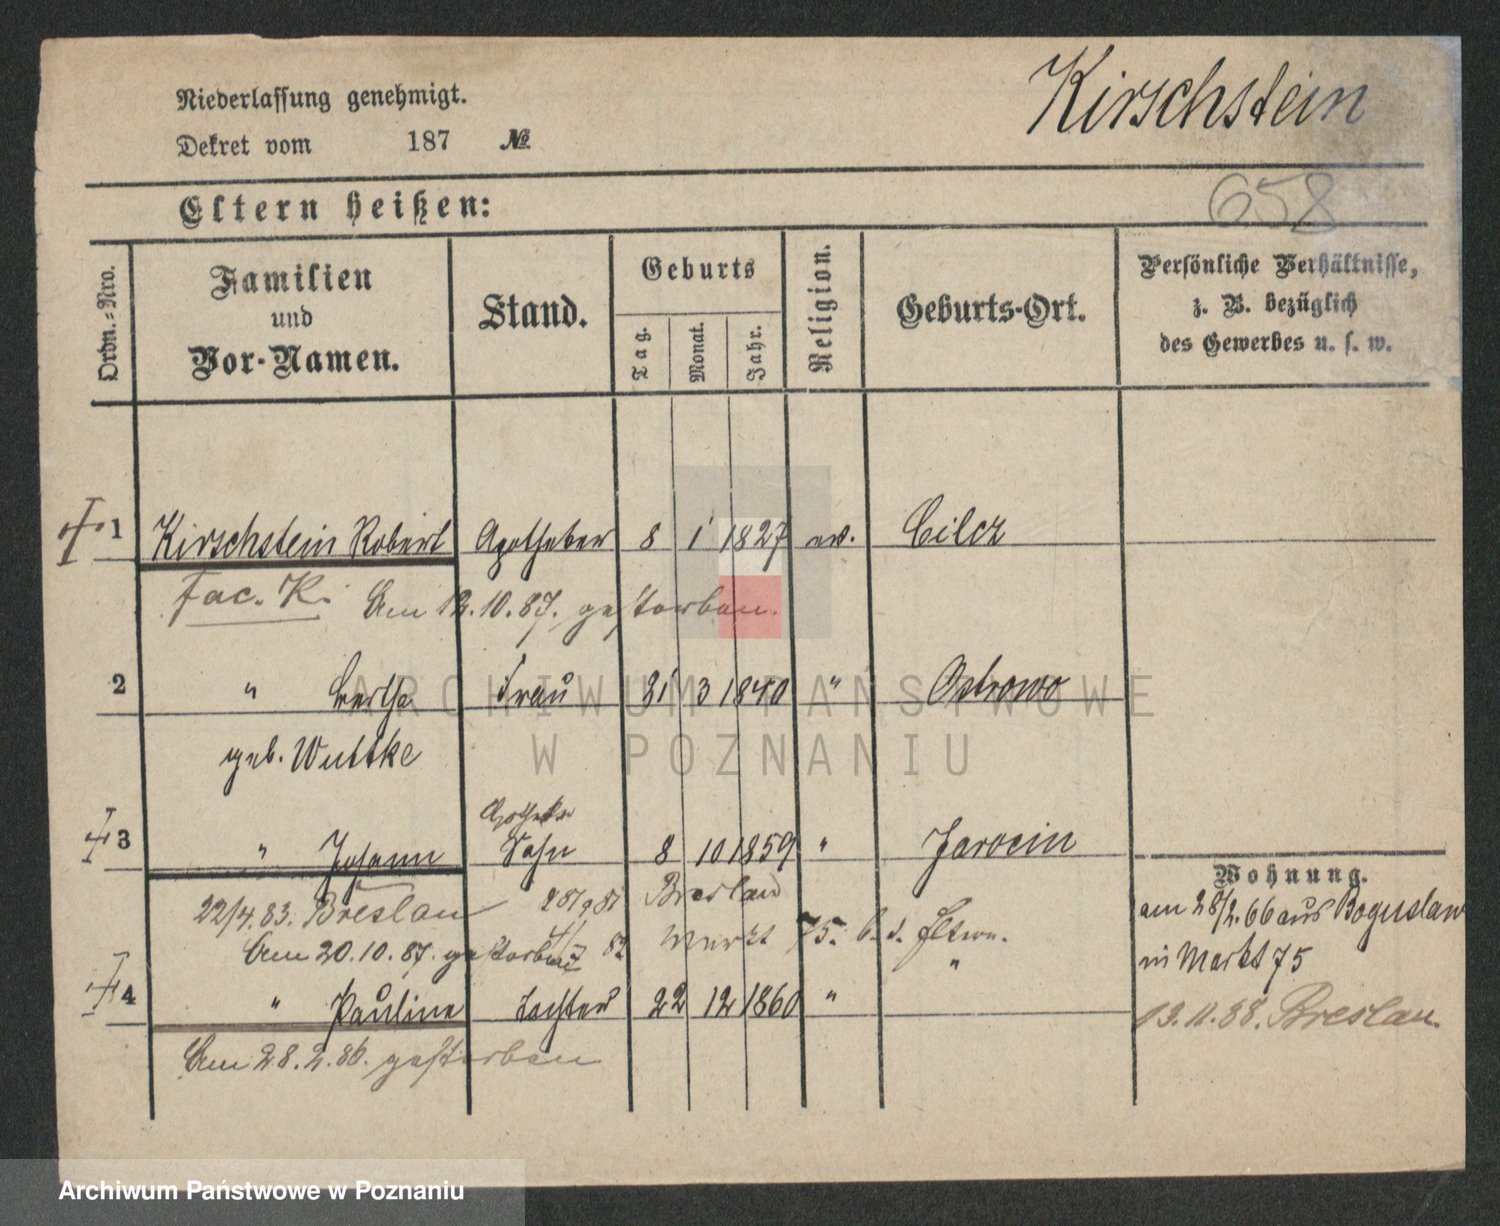 Niederlassung genehmigt.
Dekret vom 187 №
Kirschstein
658
Eltern heißen:
Ordn.=Nro.
Familien
und
Vor-Namen.
Stand.
Geburts
Tag.
Monat.
Jahr.
Religion.
Geburts-Ort.
Persönliche Verhältnisse,
z. B. bezüglich
des Gewerbes u. s. w.
1 Kirschstein Robert Apotheker 8 1 1827 ev.
Fac. K. Am 12.10.87. gestorben.
2 " Bertha Frau 21 3 1840 " Ostrowo
geb. Wuttke
Apotheker
3 " Johann Sohn 8 10 1859 " Jarocin
22/4.83. Breslau Breslau
Am 20.10.87. gestorben Markt 75. b. d. Eltern.
4 " Pauline Tochter 22 12 1860 " "
Am 28.2.86. gestorben
Wohnung.
am 28/2.66 aus Boguslaw
in Markt 75
13.11.88. Breslau
ARCHIWUM PAŃSTWOWE
W POZNANIU
Archiwum Państwowe w Poznaniu